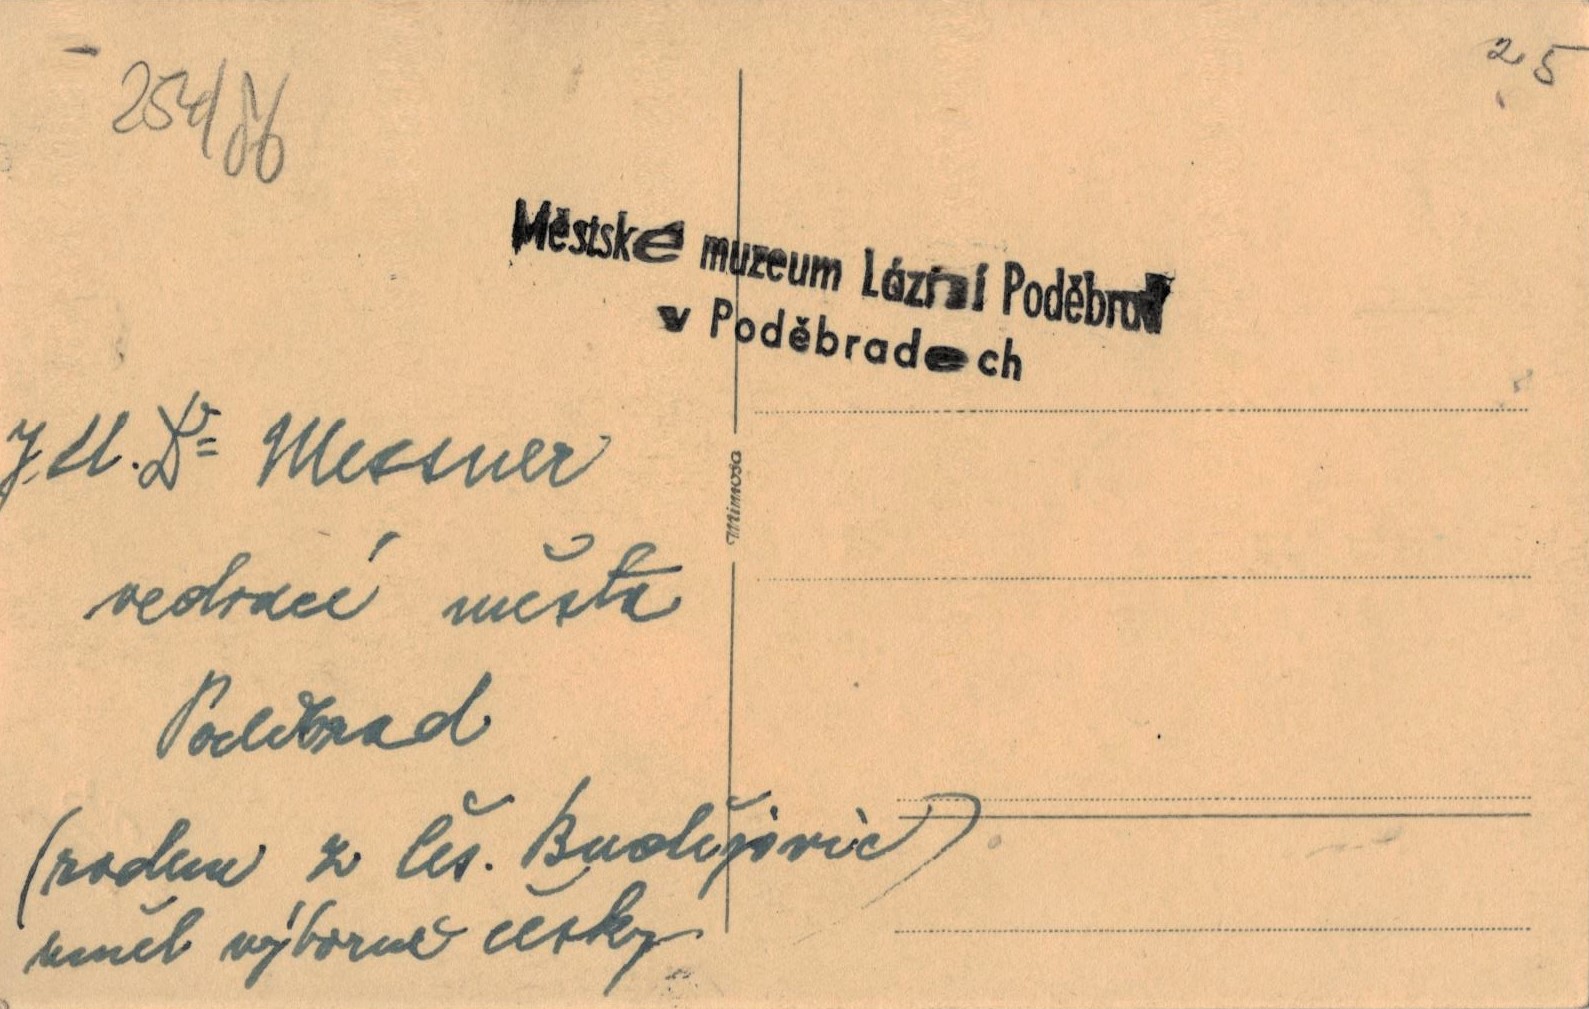 254/86
25
Městské muzeum Lázní Poděbrad
v Poděbradech
J.U.Dr Messner
vedoucí města
Poděbrad
(rodem z Čes. Budějovic)
uměl výborně česky
Mimosa